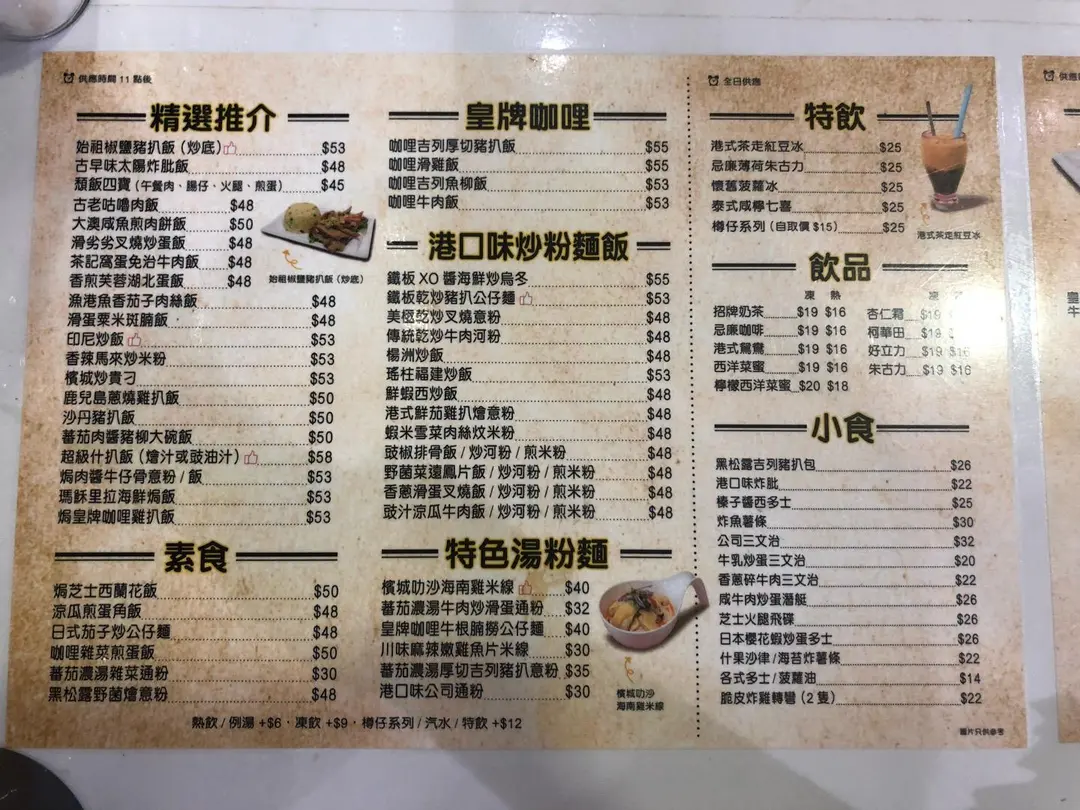 供應時間 11 點後
精選推介
始祖椒鹽豬扒飯 (炒底) $53
古早味太陽炸肶飯 $48
頹飯四寶 (午餐肉、腸仔、火腿、煎蛋) $45
古老咕嚕肉飯 $48
大澳咸魚煎肉餅飯 $50
滑劣劣叉燒炒蛋飯 $48
茶記窩蛋免治牛肉飯 $48
香煎芙蓉湖北蛋飯 $48
始祖椒鹽豬扒飯 (炒底)
漁港魚香茄子肉絲飯 $48
滑蛋粟米斑腩飯 $48
印尼炒飯 $53
香辣馬來炒米粉 $53
檳城炒貴刁 $53
鹿兒島蔥燒雞扒飯 $50
沙丹豬扒飯 $50
蕃茄肉醬豬柳大碗飯 $50
超級什扒飯 (燴汁或豉油汁) $58
焗肉醬牛仔骨意粉 / 飯 $53
瑪穌里拉海鮮焗飯 $53
焗皇牌咖喱雞扒飯 $53
素食
焗芝士西蘭花飯 $50
涼瓜煎蛋角飯 $48
日式茄子炒公仔麵 $48
咖喱雜菜煎蛋飯 $50
蕃茄濃湯雜菜通粉 $30
黑松露野菌燴意粉 $48
皇牌咖哩
咖哩吉列厚切豬扒飯 $55
咖哩滑雞飯 $55
咖哩吉列魚柳飯 $53
咖哩牛肉飯 $53
港口味炒粉麵飯
鐵板 XO 醬海鮮炒烏冬 $55
鐵板乾炒豬扒公仔麵 $53
美極乾炒叉燒意粉 $48
傳統乾炒牛肉河粉 $48
楊洲炒飯 $48
瑤柱福建炒飯 $53
鮮蝦西炒飯 $48
港式鮮茄雞扒燴意粉 $48
蝦米雪菜肉絲炆米粉 $48
豉椒排骨飯 / 炒河粉 / 煎米粉 $48
野菌菜遠鳳片飯 / 炒河粉 / 煎米粉 $48
香蔥滑蛋叉燒飯 / 炒河粉 / 煎米粉 $48
豉汁涼瓜牛肉飯 / 炒河粉 / 煎米粉 $48
特色湯粉麵
檳城叻沙海南雞米線 $40
蕃茄濃湯牛肉炒滑蛋通粉 $32
皇牌咖哩牛根腩撈公仔麵 $40
川味麻辣嫩雞魚片米線 $30
蕃茄濃湯厚切吉列豬扒意粉 $35
港口味公司通粉 $30
檳城叻沙
海南雞米線
熱飲 / 例湯 +$6 · 凍飲 +$9 · 樽仔系列 / 汽水 / 特飲 +$12
全日供應
特飲
港式茶走紅豆冰 $25
忌廉薄荷朱古力 $25
懷舊菠蘿冰 $25
泰式咸檸七喜 $25
樽仔系列 (自取價 $15) $25
港式茶走紅豆冰
飲品
凍 熱
招牌奶茶 $19 $16
忌廉咖啡 $19 $16
港式鴛鴦 $19 $16
西洋菜蜜 $19 $16
檸檬西洋菜蜜 $20 $18
凍
杏仁霜 $19
柯華田 $19
好立力 $19 $16
朱古力 $19 $16
小食
黑松露吉列豬扒包 $26
港口味炸肶 $22
榛子醬西多士 $25
炸魚薯條 $30
公司三文治 $32
牛乳炒蛋三文治 $20
香蔥碎牛肉三文治 $22
咸牛肉炒蛋潛艇 $26
芝士火腿飛碟 $26
日本櫻花蝦炒蛋多士 $26
什果沙律 / 海苔炸薯條 $22
各式多士 / 菠蘿油 $14
脆皮炸雞轉彎 (2 隻) $22
圖片只供參考
供應